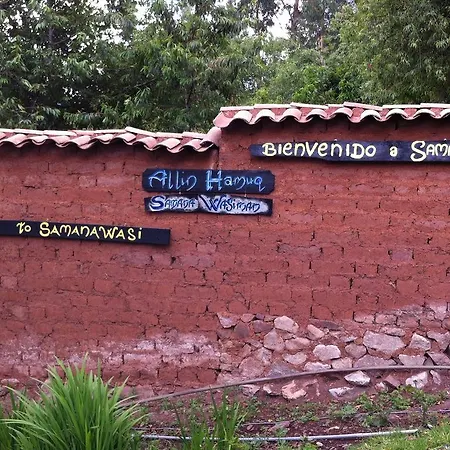 Bienvenido a Sam
Allin Hamuq
Samana Wasiman
to Samanawasi